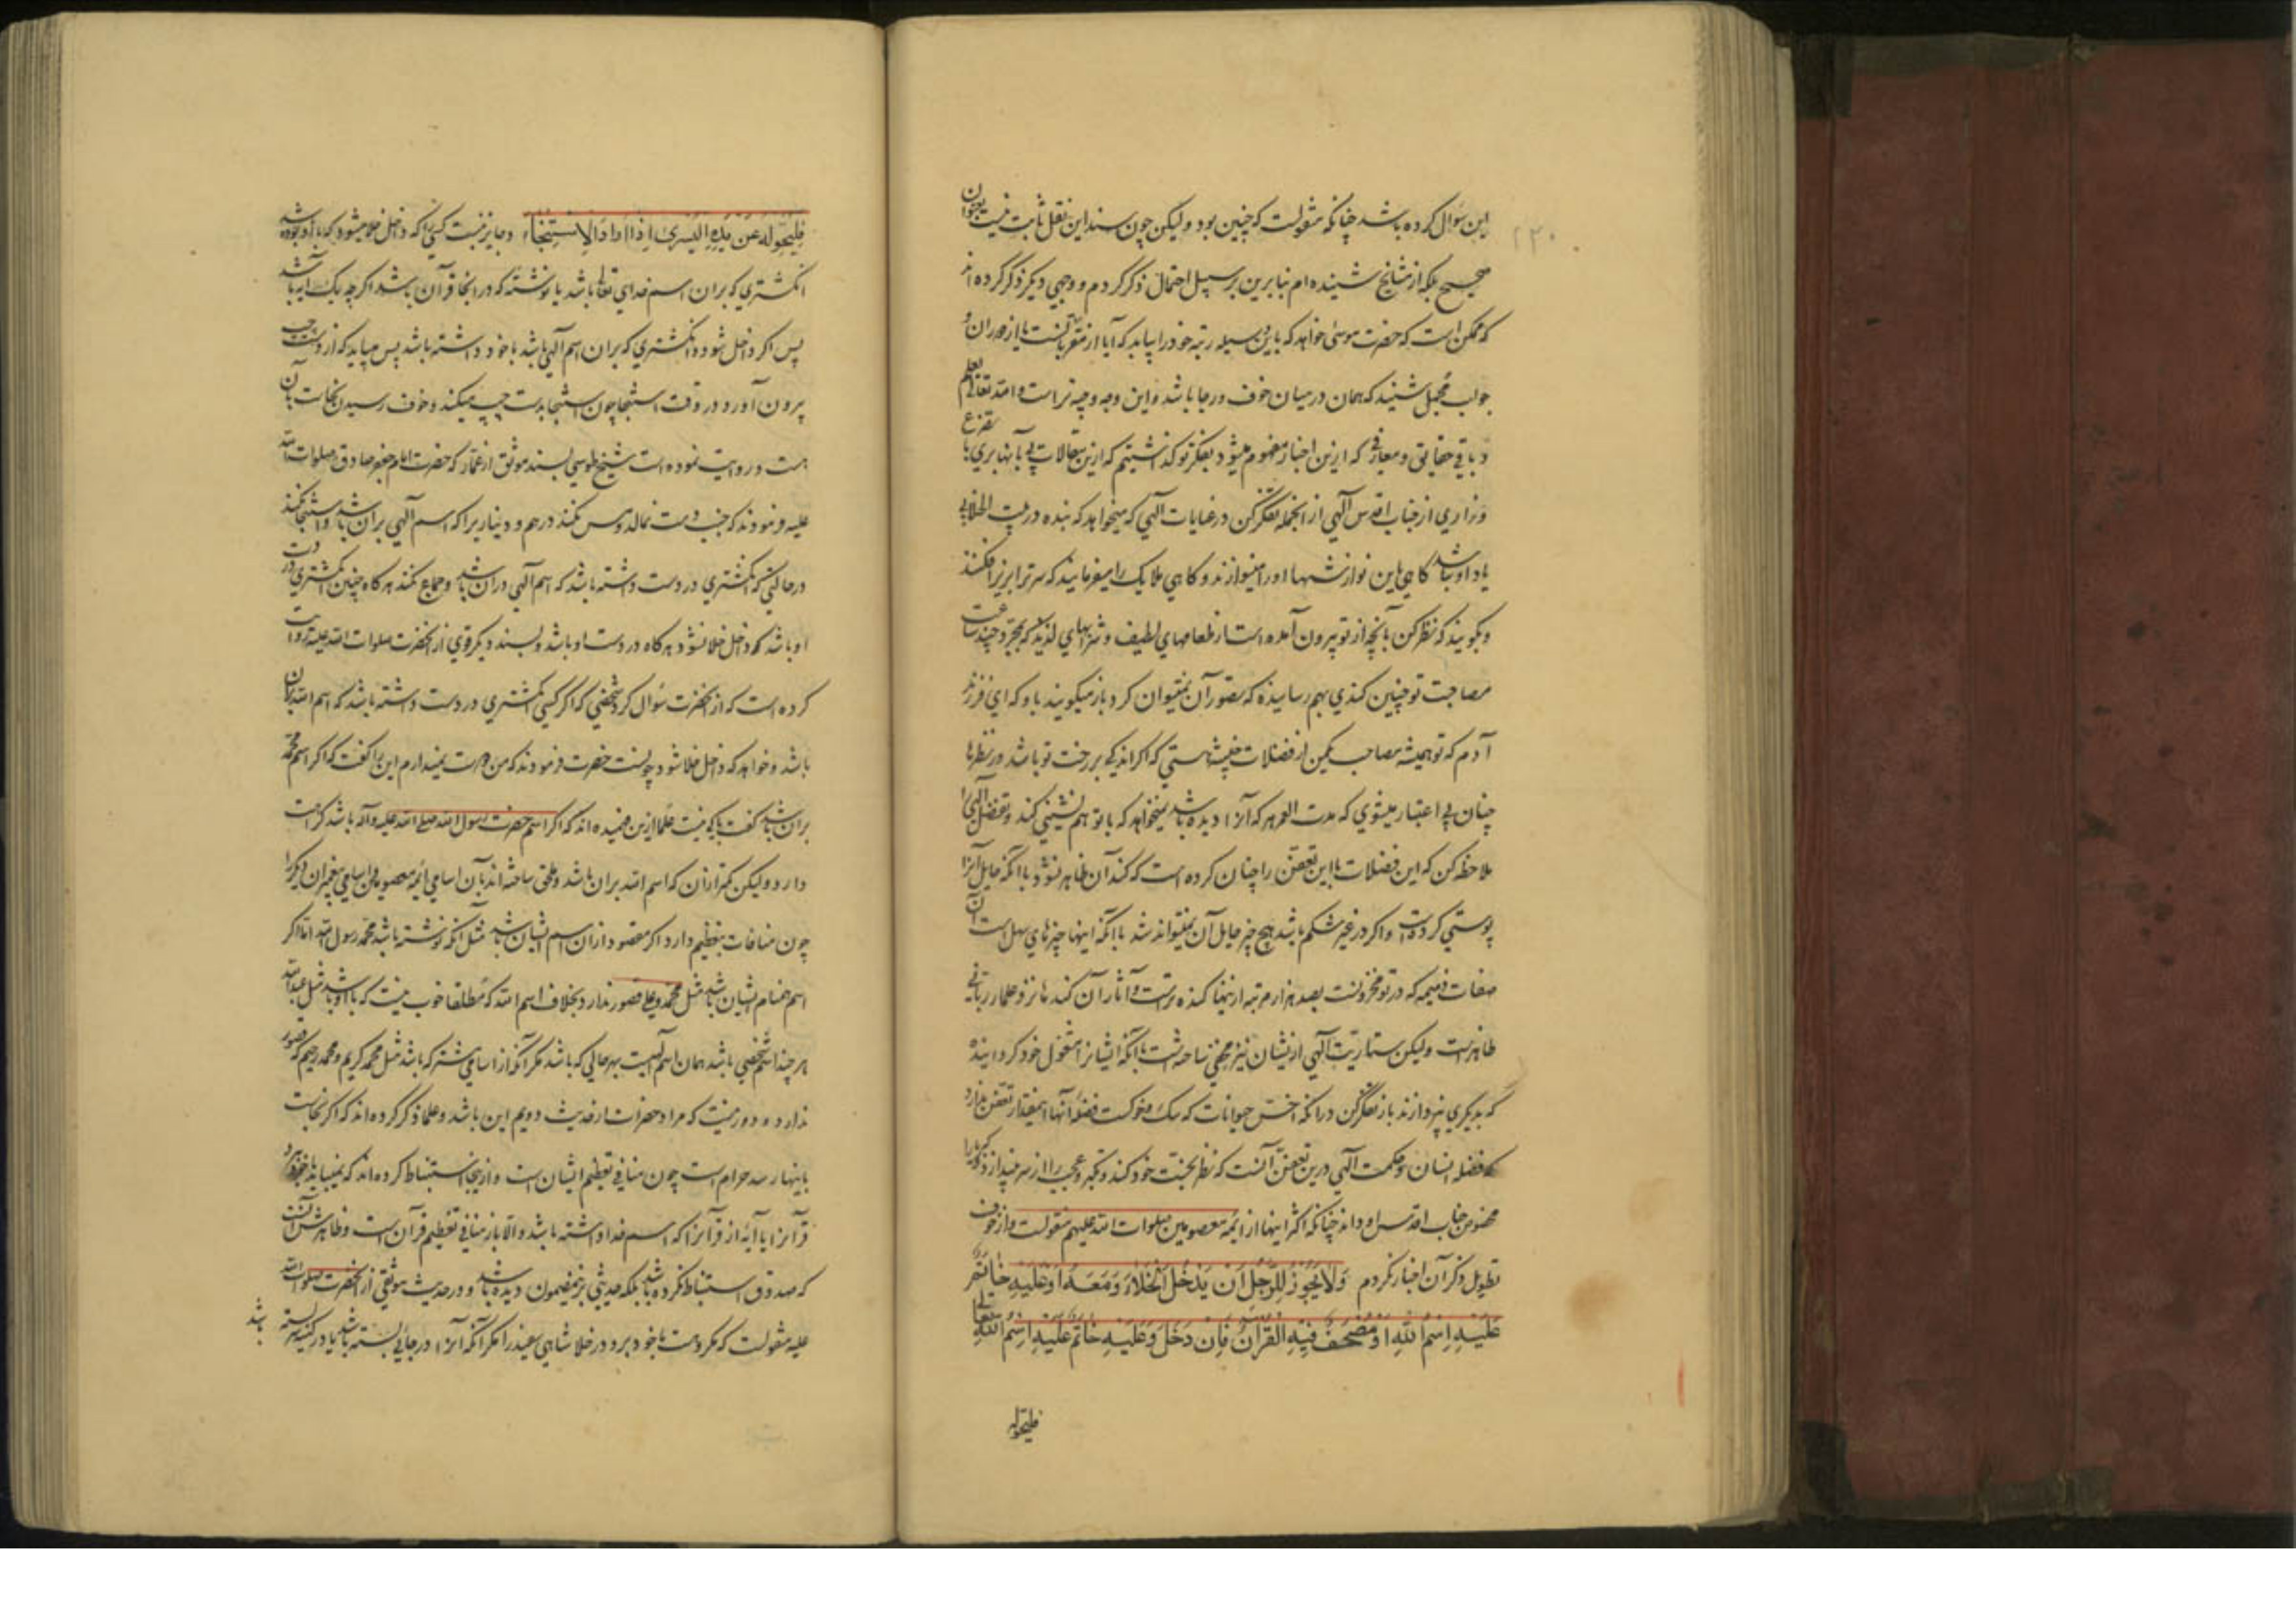 این سؤال کرده باشد چنانکه منقولست که چنین بود ولیکن چون سند این نقل ثابت نیست بعنوان
صحیح بلکه از مشایخ شنیده‌ام بنابرین بر سبیل احتمال ذکر کردم و وجهی دیگر ذکر کرده اند
که ممکن است که حضرت موسی خواهد که باین وسیله رتبه خود را بیابد که آیا از مقربانست یا از دوران و
جواب مجمل شنید که همان در میان خوف و رجا باشد و این وجه وجیه تر است و الله تعالی یعلم
و باقی حقایق و معارفی که ازین اخبار مفهوم میشود بفکر تو گذاشتیم که ازین مقالات پی بآنها بری با تضرع
و زاری از جناب اقدس الهی از انجمله تفکر کن در عنایات الهی که میخواهد که بنده در بیت الخلا بی
یاد او نباشد کاهی باین نوازشها او را مینوازند و کاهی ملایک را میفرمایند که سر ترا بزیر افکنند
و بگویند که نظر کن بآنچه از تو بیرون آمده است از طعامهای لطیف و شرابهای لذیذ که بمجرد چند ساعت
مصاحبت تو چنین کندی بهم رسانیده که تصور آن نمیتوان کرد باز میگویند باو که ای فرزند
آدم که تو همیشه مصاحب چنین از فضلات خبیثه هستی که اگر اندکی بر رخت تو باشد در نظرها
چنان بی اعتبار میشوی که مدت العمر هر که آنرا دیده باشد نمیخواهد که با تو هم نشینی کند و تفضل الهی را
ملاحظه کن که این فضلات با این تعفن را چنان کرده است که کند آن ظاهر نشود با آنکه حایل آنرا
پوستی کرده است و اگر در غیر شکم باشد هیچ چیز حایل آن نمیتواند شد با آنکه اینها چیزهای سهل است آن
صفات ذمیمه که در تو مخزونست بصد هزار مرتبه از اینها کنده ترست و آثار آن کندها نزد علمار ربانی
ظاهرست ولیکن ستاریت الهی از ایشان نیز مخفی ساخته است با آنکه ایشانرا مشغول خود کردانیده
که بدیگری نپردازند باز تفکر کن در آنکه اخس حیوانات که سک و خوکست فضله آنها اینمقدار تعفن ندارد
که فضله انسان و حکمت الهی درین تعفن آنست که نظر بخبث خود کند و تکبر و عجب را از سر بیندازد و کبریا را
مخصوص جناب اقدس او داند چنانکه اکثر اینها از ائمه معصومین صلوات الله علیهم منقولست و از خوف
تطویل ذکر آن اخبار نکردم وَلَا یَجُوزُ لِلرَّجُلِ اَنْ یَدْخُلَ الْخَلَاءَ وَمَعَهُ اَوْ عَلَیْهِ خَاتَمٌ
عَلَیْهِ اِسْمُ اللهِ اَوْ مُصْحَفٌ فِیْهِ الْقُرْآنُ فَاِنْ دَخَلَ وَعَلَیْهِ خَاتَمٌ عَلَیْهِ اِسْمُ اللهِ تعالی
فلیحوله
فَلْیُحَوِّلْهُ عَنْ یَدِهِ الْیُسْریٰ اِذَا اَرَادَ الْاِسْتِنْجَاءَ و جایز نیست کسی را که داخل خلا میشود که با او بوده باشد
انکشتری که بران اسم خدای تعالی باشد یا نوشته که در انجا قرآن باشد اگر چه یک آیه باشد
پس اگر داخل شود و انکشتری که بران اسم الهی باشد با خود داشته باشد پس میباید که از دست چپ
بیرون آورد در وقت استنجا چون استنجا بدست چپ میکند و خوف رسیدن نجاست بآن
هست و روایت نموده است شیخ طوسی بسند موثق از عمار که حضرت امام جعفر صادق صلوات الله
علیه فرمودند که جنب دست نمالد و مس نکند درهم و دیناریرا که اسم الهی بران باشد و استنجا نکند
در حالتی که انکشتری در دست داشته باشد که اسم الهی دران باشد و جماع نکند هر کاه چنین انکشتری در دست
او باشد که داخل خلا نشود هر کاه در دست او باشد و بسند دیگر قوی از انحضرت صلوات الله علیه روایت
کرده است که از انحضرت سؤال کرد شخصی که اگر کسی انکشتری در دست داشته باشد که اسم الله بران
باشد و خواهد که داخل خلا شود چونست حضرت فرمودند که من دوست نمیدارم این را گفت که اگر اسم محمد
بران باشد گفت باکی نیست علما ازین فهمیده اند که اگر اسم حضرت رسول الله صلی الله علیه وآله باشد کراهت
دارد ولیکن کمتر ازان که اسم الله بران باشد و ملحق ساخته اند بآن اسامی ائمه معصومین و اسامی پیغمبران دیگر را
چون منافات بتعظیم دارد اگر مقصود ازان اسم ایشان باشد مثل آنکه نوشته باشد محمد رسول الله اما اگر
اسم همنام ایشان باشد مثل محمد و علی قصور ندارد بخلاف اسم الله که مطلقا خوب نیست که با او باشد مثل عبد الله
هر چند اسم شخصی باشد همان اسم الهیست بهر حالی که باشد مگر آنکه از اسامی مشترکه باشد مثل محمد کریم و محمد رحیم که قصور
ندارد و دور نیست که مراد حضرات از حدیث دویم این باشد و علما ذکر کرده اند که اگر نجاست
باینها رسد حرام است چون منافی تعظیم ایشان است و ازینجا استنباط کرده اند که نمیباید با خود برد
قرآنرا یا آیهٔ از قرآنرا که اسم خدا داشته باشد والا باز منافی تعظیم قرآن است و ظاهرش آنست
که صدوق استنباط نکرده باشد بلکه حدیثی برینمضمون دیده باشد و در حدیث موثقی از انحضرت صلوات الله
علیه منقولست که مکروهست با خود برد در خلا شاهی سفید را مگر آنکه آنرا در جائی بسته باشد یا در کیسه سربسته
باشد